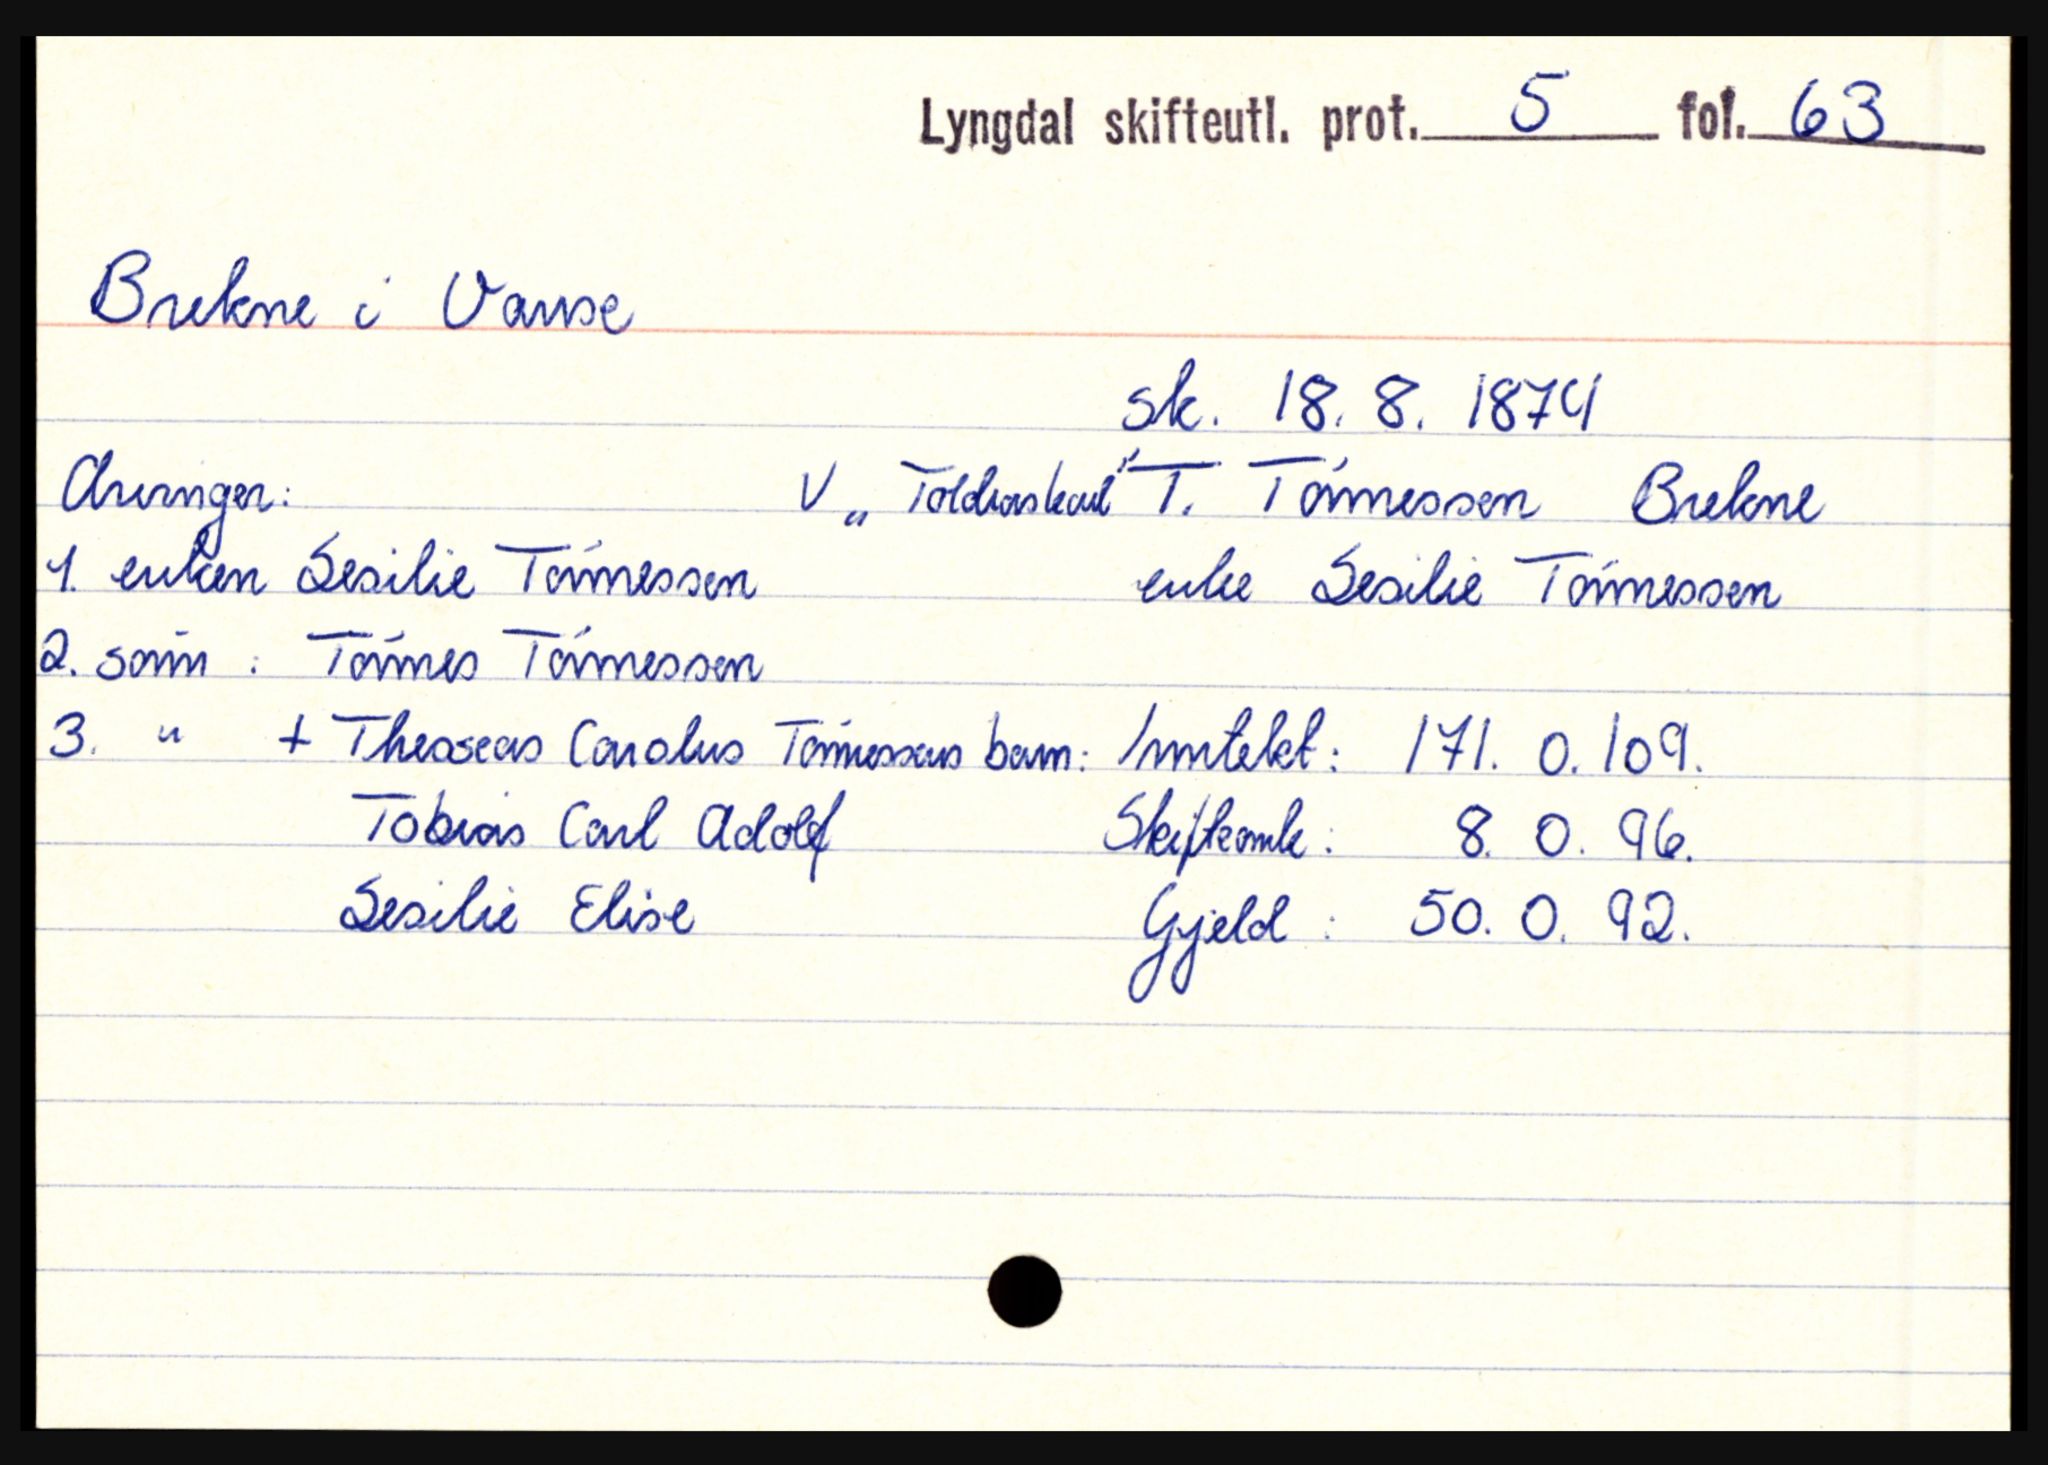 Lyngdal skifteutl. prot. 5 fol. 63
Brekne i Vanse
sk. 18. 8. 1874
Arvinger: V „ Toldraskarl" T. Tönnessen Brekne
1. enken Sesilie Tönnessen enke Sesilie Tönnessen
2. sönn : Tönnes Tönnessen
3. " + Theoseas Carolus Tönnessens barn: Inntekt: 171. 0. 109.
Tobias Carl Adolf Skifteomk: 8. 0. 96.
Sesilie Elise Gjeld : 50. 0. 92.